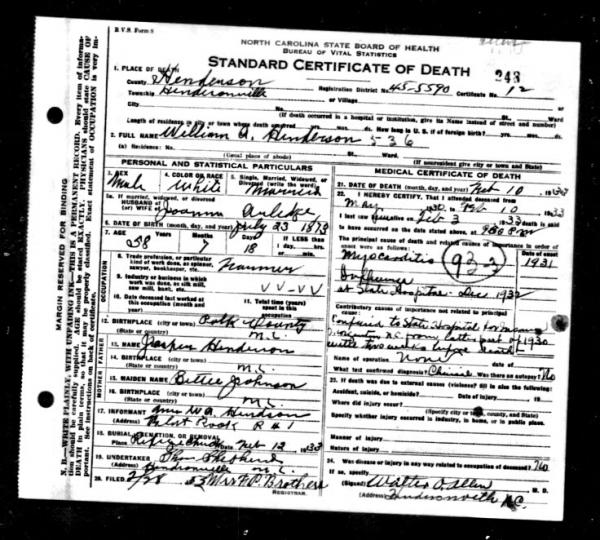 B.V.S. Form 8
NORTH CAROLINA STATE BOARD OF HEALTH
BUREAU OF VITAL STATISTICS
STANDARD CERTIFICATE OF DEATH
243
1. PLACE OF DEATH
County Henderson
Registration District No. 45-5590 Certificate No. 12
Township Hendersonville or Village
City
(If death occurred in a hospital or institution, give its Name instead of street and number)
Length of residence in city or town where death occurred yrs. mos. ds. How long in U. S. if of foreign birth? yrs. mos. ds.
2. FULL NAME William A. Henderson 536
(a) Residence: No.
(Usual place of abode) (If nonresident give city or town and State)
PERSONAL AND STATISTICAL PARTICULARS
3. SEX Male
4. COLOR OR RACE White
5. Single, Married, Widowed, or Divorced (write the word) Married
5a. If married, widowed, or divorced
HUSBAND of
(or) WIFE of Joanna
6. DATE OF BIRTH (month, day, and year) July 23 1873
7. AGE 58 7 18 If LESS than
1 day, hrs.
or min.
OCCUPATION
8. Trade, profession, or particular kind of work done, as spinner, sawyer, bookkeeper, etc. Farmer
9. Industry or business in which work was done, as silk mill, saw mill, bank, etc. VV-VV
10. Date deceased last worked at this occupation (month and year)
11. Total time (years) spent in this occupation
12. BIRTHPLACE (city or town) Polk County
(State or country)
FATHER
13. NAME Jasper Henderson
14. BIRTHPLACE (city or town)
(State or country) N.C.
MOTHER
15. MAIDEN NAME Bettie Johnson
16. BIRTHPLACE (city or town)
(State or country) N.C.
17. INFORMANT Mrs W.A. Henderson
(Address) Flat Rock R #1
18. BURIAL, CREMATION, OR REMOVAL
Place Refuge Church Date Feb 12 1933
19. UNDERTAKER Thos Shepherd
(Address) Hendersonville N.C.
20. FILED 2/28 33 Mrs F.P. Brothers
REGISTRAR.
MEDICAL CERTIFICATE OF DEATH
21. DATE OF DEATH (month, day, and year) Feb 10 1933
22. I HEREBY CERTIFY, That I attended deceased from
May 1930, to Feb 10 1933
I last saw him alive on Feb 3 1933, death is said
to have occurred on the date stated above, at
The principal cause of death and related causes of importance in order of onset were as follows:
Date of onset
Myocarditis 93-2 1931
Influenza
at State Hospital Dec 1932
Contributory causes of importance not related to principal cause:
Confined to State Hospital for
from latter part of 1930
until two weeks before death
Name of operation None Date of
What test confirmed diagnosis? Clinical Was there an autopsy? No
23. If death was due to external causes (violence) fill in also the following:
Accident, suicide, or homicide? Date of injury 19
Where did injury occur?
(Specify city or town, county, and State)
Specify whether injury occurred in industry, in home, or in public place.
Manner of injury
Nature of injury
24. Was disease or injury in any way related to occupation of deceased? No
If so, specify
(Signed) Walter O. Allen M. D.
(Address) Hendersonville N.C.
MARGIN RESERVED FOR BINDING
N. B.—WRITE PLAINLY, WITH UNFADING INK—THIS IS A PERMANENT RECORD. Every item of information should be carefully supplied. AGE should be stated EXACTLY. PHYSICIANS should state CAUSE OF DEATH in plain terms, so that it may be properly classified. Exact statement of OCCUPATION is very important. See instructions on back of certificate.